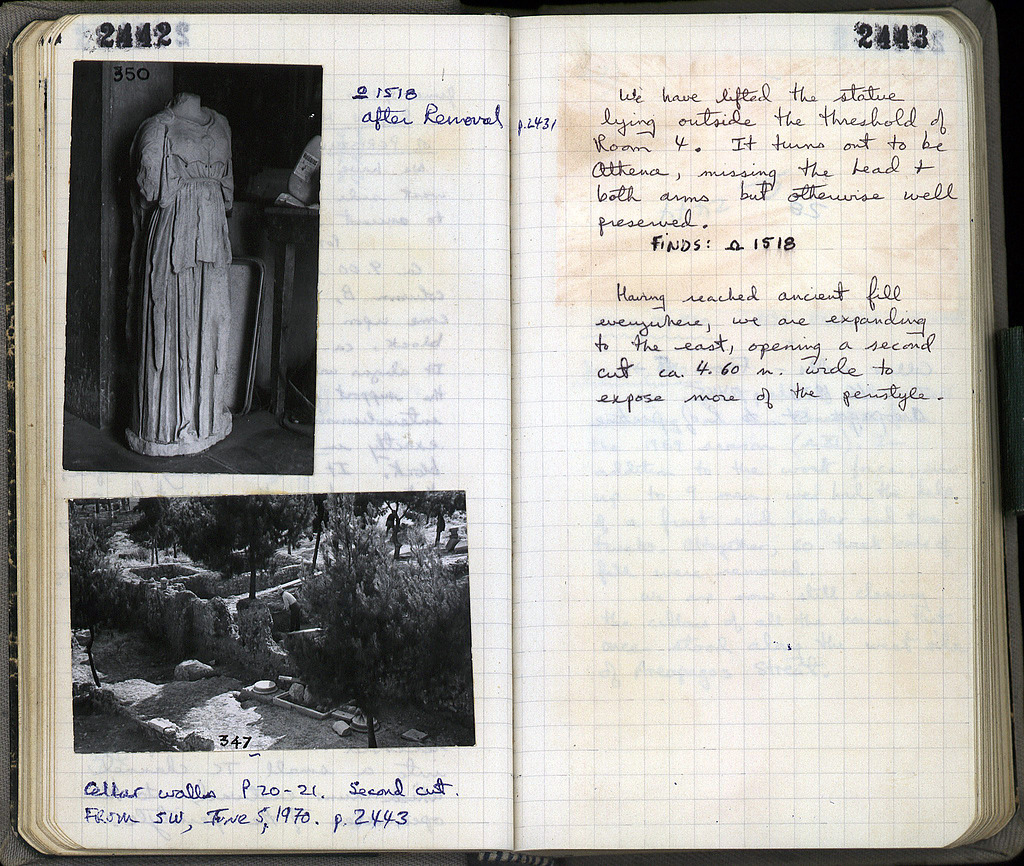 2442
350
Ω 1518
after Removal p.2431
347
Cellar walls P 20-21. Second cut.
FROM SW, June 5, 1970. p. 2443
2443
We have lifted the statue
lying outside the threshold of
Room 4. It turns out to be
Athena, missing the head +
both arms but otherwise well
preserved.
FINDS: Ω 1518
Having reached ancient fill
everywhere, we are expanding
to the east, opening a second
cut ca. 4.60 m. wide to
expose more of the peristyle.